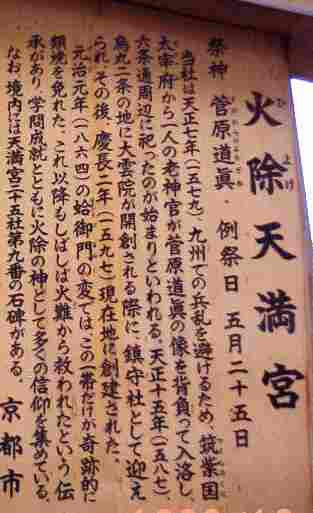 火除天満宮
祭神 菅原道眞・例祭日 五月二十五日
当社は天正七年(一五七九)、九州での兵乱を避けるため、筑紫国
太宰府から一人の老神官が菅原道眞の像を背負って入洛し、
六条通周辺に祀ったのが始まりといわれる。天正十五年(一五八七)
烏丸二条の地に大雲院が開創される際に、鎮守社として迎え
られ、その後、慶長二年(一五九七)現在地に創建された。
元治元年(一八六四)の蛤御門の変では、この一帯だけが奇跡的に
類焼を免れた。これ以降もしばしば火難から救われたという伝
承があり、学問成就とともに火除の神として多くの信仰を集めている。
なお、境内には天満宮二十五社第九番の石碑がある。
京都市